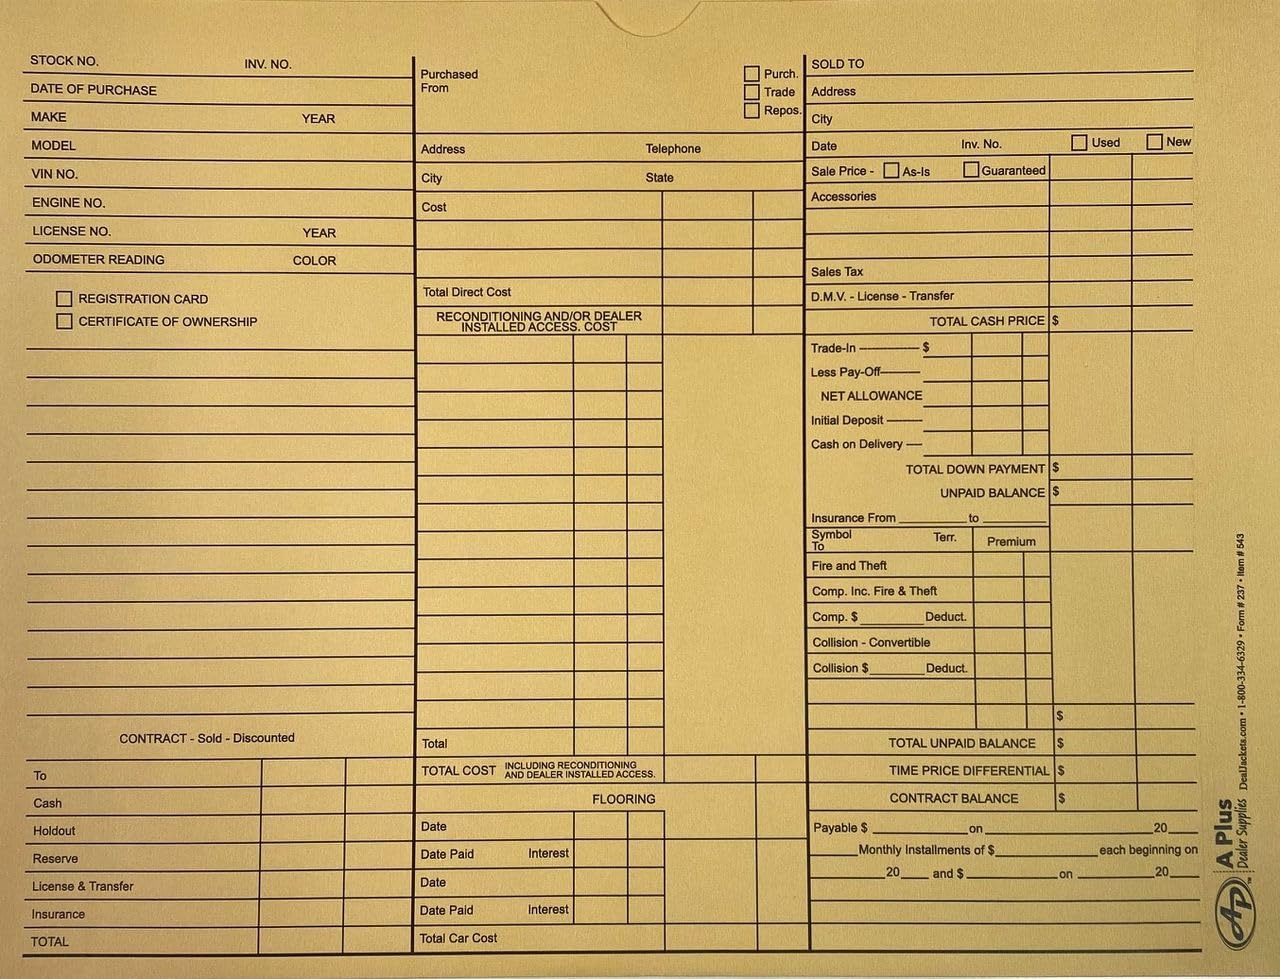 STOCK NO. INV. NO.
DATE OF PURCHASE
MAKE YEAR
MODEL
VIN NO.
ENGINE NO.
LICENSE NO. YEAR
ODOMETER READING COLOR
REGISTRATION CARD
CERTIFICATE OF OWNERSHIP
CONTRACT - Sold - Discounted
To
Cash
Holdout
Reserve
License & Transfer
Insurance
TOTAL
Purchased
From
Purch.
Trade
Repos.
Address Telephone
City State
Cost
Total Direct Cost
RECONDITIONING AND/OR DEALER
INSTALLED ACCESS. COST
Total
TOTAL COST INCLUDING RECONDITIONING
AND DEALER INSTALLED ACCESS.
FLOORING
Date
Date Paid Interest
Date
Date Paid Interest
Total Car Cost
SOLD TO
Address
City
Date Inv. No. Used New
Sale Price - As-Is Guaranteed
Accessories
Sales Tax
D.M.V. - License - Transfer
TOTAL CASH PRICE $
Trade-In $
Less Pay-Off
NET ALLOWANCE
Initial Deposit
Cash on Delivery
TOTAL DOWN PAYMENT $
UNPAID BALANCE $
Insurance From ________ to ________
Symbol Terr. Premium
To
Fire and Theft
Comp. Inc. Fire & Theft
Comp. $ ________ Deduct.
Collision - Convertible
Collision $ ________ Deduct.
$
TOTAL UNPAID BALANCE $
TIME PRICE DIFFERENTIAL $
CONTRACT BALANCE $
Payable $ ________ on ________ 20____
____ Monthly Installments of $ ________ each beginning on
________ 20____ and $ ________ on ________ 20____
AP™
A Plus
Dealer Supplies DealJackets.com • 1-800-334-6329 • Form # 237 • Item # 543